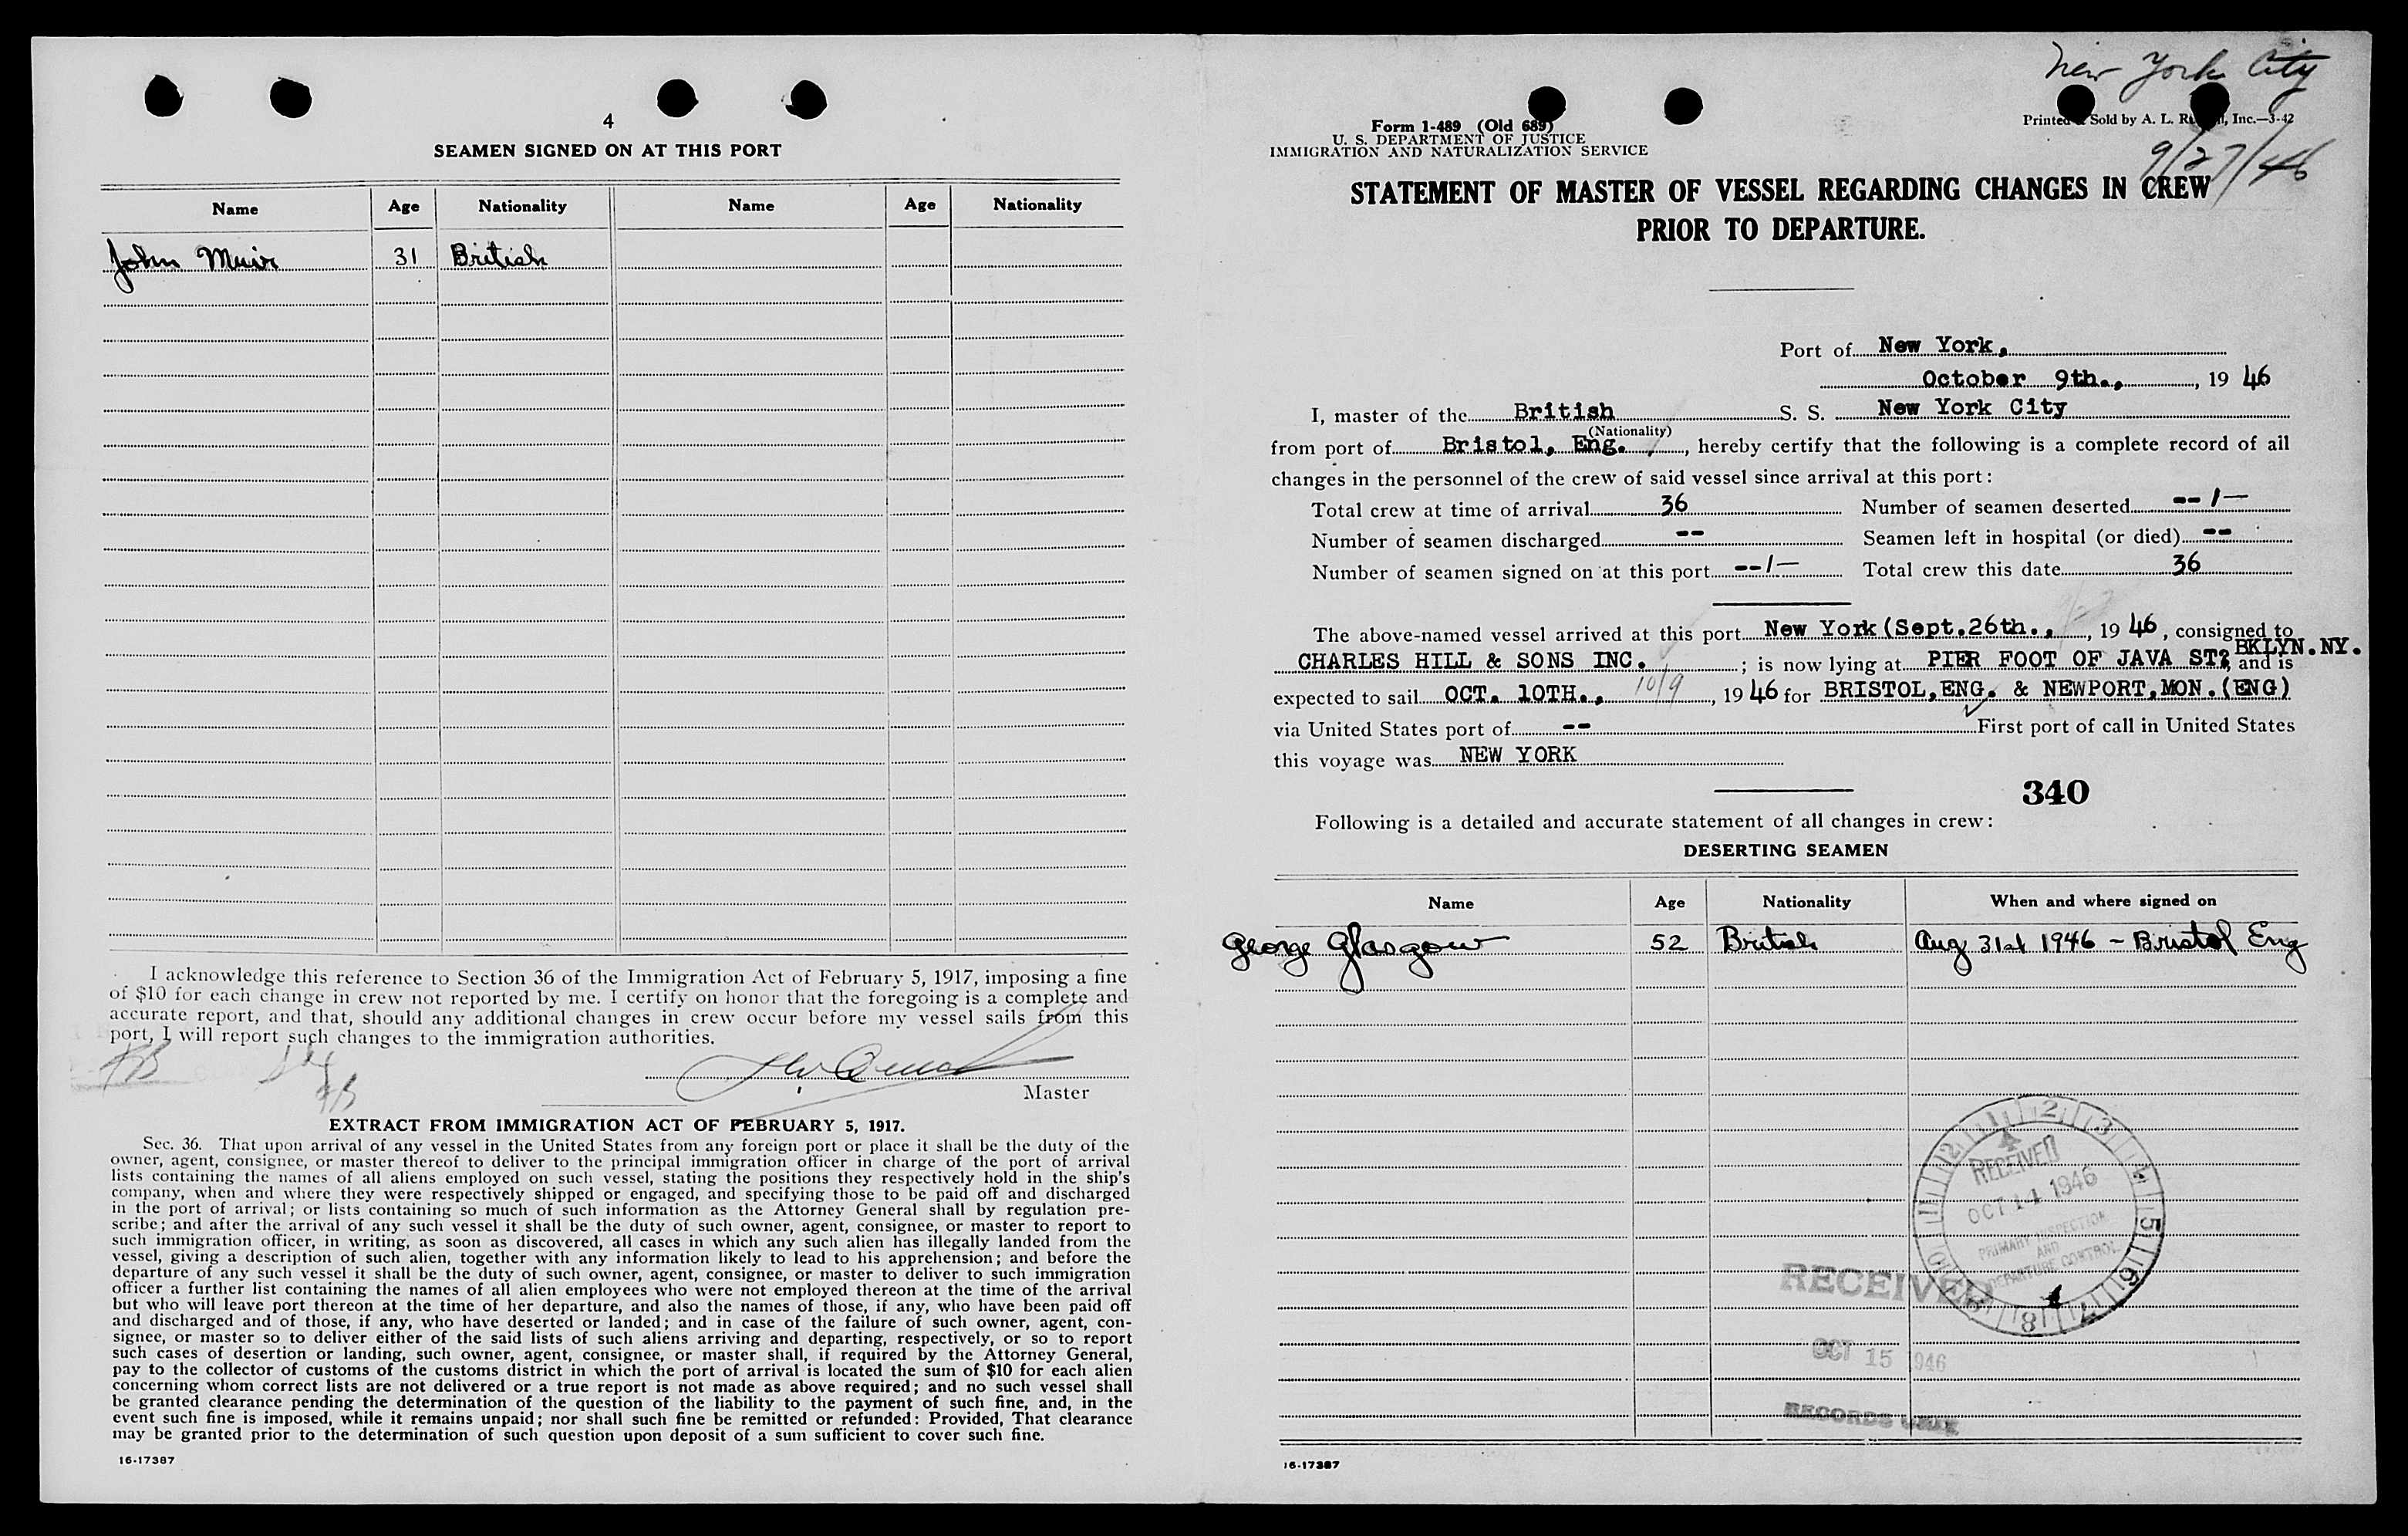 4
SEAMEN SIGNED ON AT THIS PORT
Name Age Nationality Name Age Nationality
John Muir 31 British
I acknowledge this reference to Section 36 of the Immigration Act of February 5, 1917, imposing a fine
of $10 for each change in crew not reported by me. I certify on honor that the foregoing is a complete and
accurate report, and that, should any additional changes in crew occur before my vessel sails from this
port, I will report such changes to the immigration authorities.
Master
EXTRACT FROM IMMIGRATION ACT OF FEBRUARY 5, 1917.
Sec. 36. That upon arrival of any vessel in the United States from any foreign port or place it shall be the duty of the
owner, agent, consignee, or master thereof to deliver to the principal immigration officer in charge of the port of arrival
lists containing the names of all aliens employed on such vessel, stating the positions they respectively hold in the ship's
company, when and where they were respectively shipped or engaged, and specifying those to be paid off and discharged
in the port of arrival; or lists containing so much of such information as the Attorney General shall by regulation pre-
scribe; and after the arrival of any such vessel it shall be the duty of such owner, agent, consignee, or master to report to
such immigration officer, in writing, as soon as discovered, all cases in which any such alien has illegally landed from the
vessel, giving a description of such alien, together with any information likely to lead to his apprehension; and before the
departure of any such vessel it shall be the duty of such owner, agent, consignee, or master to deliver to such immigration
officer a further list containing the names of all alien employees who were not employed thereon at the time of the arrival
but who will leave port thereon at the time of her departure, and also the names of those, if any, who have been paid off
and discharged and of those, if any, who have deserted or landed; and in case of the failure of such owner, agent, con-
signee, or master so to deliver either of the said lists of such aliens arriving and departing, respectively, or so to report
such cases of desertion or landing, such owner, agent, consignee, or master shall, if required by the Attorney General,
pay to the collector of customs of the customs district in which the port of arrival is located the sum of $10 for each alien
concerning whom correct lists are not delivered or a true report is not made as above required; and no such vessel shall
be granted clearance pending the determination of the question of the liability to the payment of such fine, and, in the
event such fine is imposed, while it remains unpaid; nor shall such fine be remitted or refunded: Provided, That clearance
may be granted prior to the determination of such question upon deposit of a sum sufficient to cover such fine.
16-17387
New York City
9/27/46
Form 1-489 (Old 689)
U. S. DEPARTMENT OF JUSTICE
IMMIGRATION AND NATURALIZATION SERVICE
Printed & Sold by A. L. Inc.—3-42
STATEMENT OF MASTER OF VESSEL REGARDING CHANGES IN CREW
PRIOR TO DEPARTURE.
Port of New York,
October 9th., 19 46
I, master of the British S. S. New York City
(Nationality)
from port of Bristol, Eng. , hereby certify that the following is a complete record of all
changes in the personnel of the crew of said vessel since arrival at this port:
Total crew at time of arrival 36 Number of seamen deserted -- 1 —
Number of seamen discharged -- Seamen left in hospital (or died) --
Number of seamen signed on at this port -- 1 — Total crew this date 36
The above-named vessel arrived at this port New York (Sept.26th., , 19 46, consigned to
CHARLES HILL & SONS INC. ; is now lying at PIER FOOT OF JAVA ST, BKLYN.NY. and is
expected to sail OCT. 10TH., 10/9 , 19 46 for BRISTOL,ENG. & NEWPORT,MON.(ENG)
via United States port of -- First port of call in United States
this voyage was NEW YORK
340
Following is a detailed and accurate statement of all changes in crew:
DESERTING SEAMEN
Name Age Nationality When and where signed on
George Glasgow 52 British Aug 31st 1946 - Bristol Eng
12 1 2 3 4 5 6 7 8 9 10 11
RECEIVED
OCT 14 1946
PRIMARY INSPECTION
AND
DEPARTURE CONTROL
RECEIVED
OCT 15 1946
RECORDS UNIT
16-17387